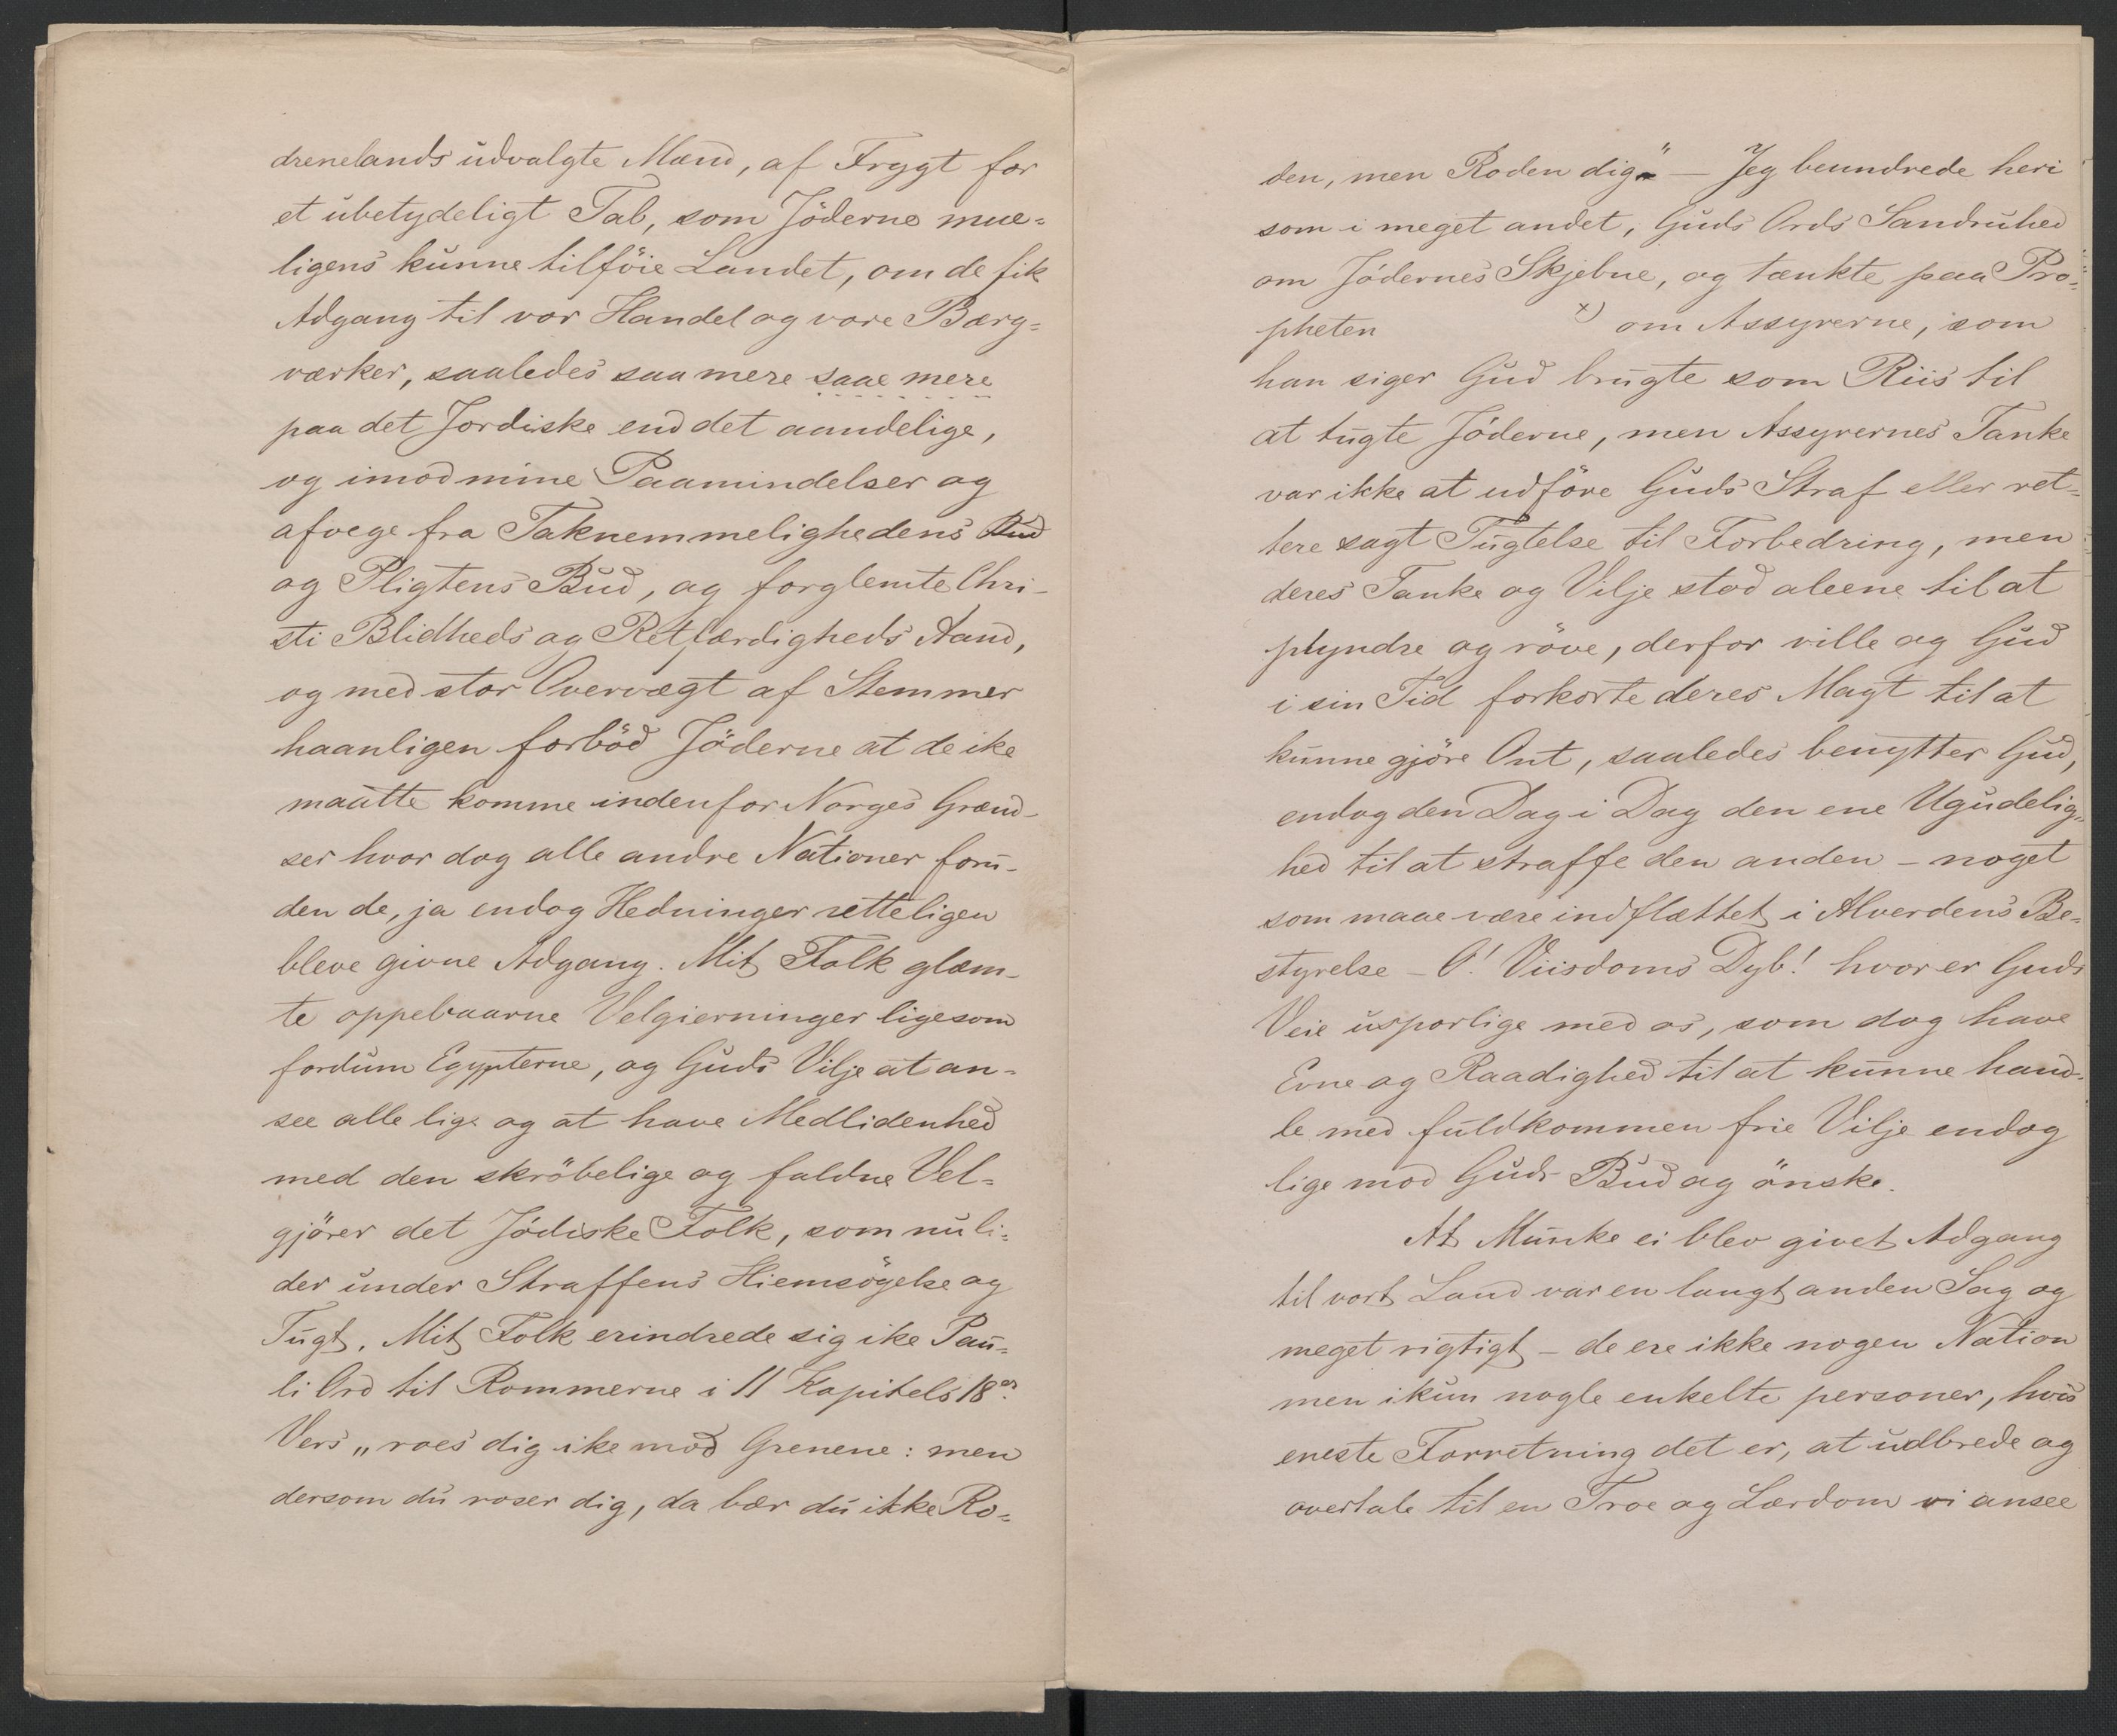 drenelands udvalgte Mænd, af Frygt for
et ubetydeligt Tab, som Jöderne mue=
ligens kunne tilföie Landet, om de fik
Adgang til vor Handel og vore Bærg=
værker, saaledes saa mere saae mere
paa det Jordiske end det aandelige,
og imod mine Paamindelser og
afvege fra Taknemmelighedens Bud
og Pligtens Bud, og forglemte Chri-
sti Blidheds og Retfærdigheds Aand,
og med stor Overvægt af Stemmer
haanligen forböd Jöderne at de ike
maatte komme indenfor Norges Grænd-
ser hvor dog alle andre Nationer foru-
den de, ja endog Hedninger retteligen
bleve givne Adgang. Mit Folk glæm-
te oppebaarne Velgierninger ligesom
fordum Egypterne, og Guds Vilje at an=
see alle lige og at have Medlidenhed
med den skröbelige og faldne Vel=
gjörer det Jödiske Folk, som nu li=
der under Straffens Hiemsögelse og
Tugt. Mit Folk erindrede sig ike Pau=
li Ord til Rommerne i 11 Kapitels 18de
Vers „roes dig ike mod Grenene: men
dersom du roser dig, da bær du ikke Ro=
den, men Roden dig" — Jeg beundrede heri
som i meget andet, Guds Ords Sandruhed
om Jödernes Skjebne, og tænkte paa Pro=
pheten x) om Assyrerne, som
han siger Gud brugte som Riis til
at tugte Jöderne, men Assyrernes Tanke
var ikke at udföre Guds Straf eller ret=
tere sagt Tugtelse til Forbedring, men
deres Tanke og Vilje stod aleene til at
plyndre og röve, derfor ville og Gud
i sin Tid forkorte deres Magt til at
kunne gjöre Ont, saaledes benytter Gud,
endog den Dag i Dag den ene Ugudelig=
hed til at straffe den anden – noget
som maae være indflættet i Alverdens Be=
styrelse – O! Viisdoms Dyb! hvor er Guds
Veie usporlige med os, som dog have
Evne og Raadighed til at kunne hand=
le med fuldkommen frie Vilje endog
lige mod Guds Bud og önske.
At Munke ei blev givet Adgang
til vort Land var en langt anden Sag og
meget rigtigt – de ere ikke nogen Nation
men ikun nogle enkelte personer, hvis
eneste Forretning det er, at udbrede og
overtale til en Troe og Lærdom vi ansee